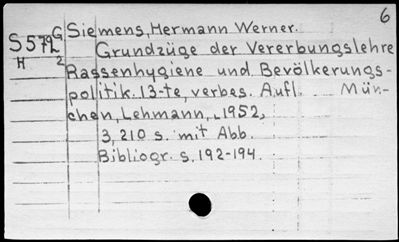 6
G Siemens, Hermann Werner.
S 572 Grundzüge der Vererbungslehre
H 2 Rassenhygiene und Bevölkerungs-
politik. 13-te, verbes. Aufl. Mün-
chen, Lehmann, 1952,
3, 210 s. mit Abb.
Bibliogr. s. 192-194.